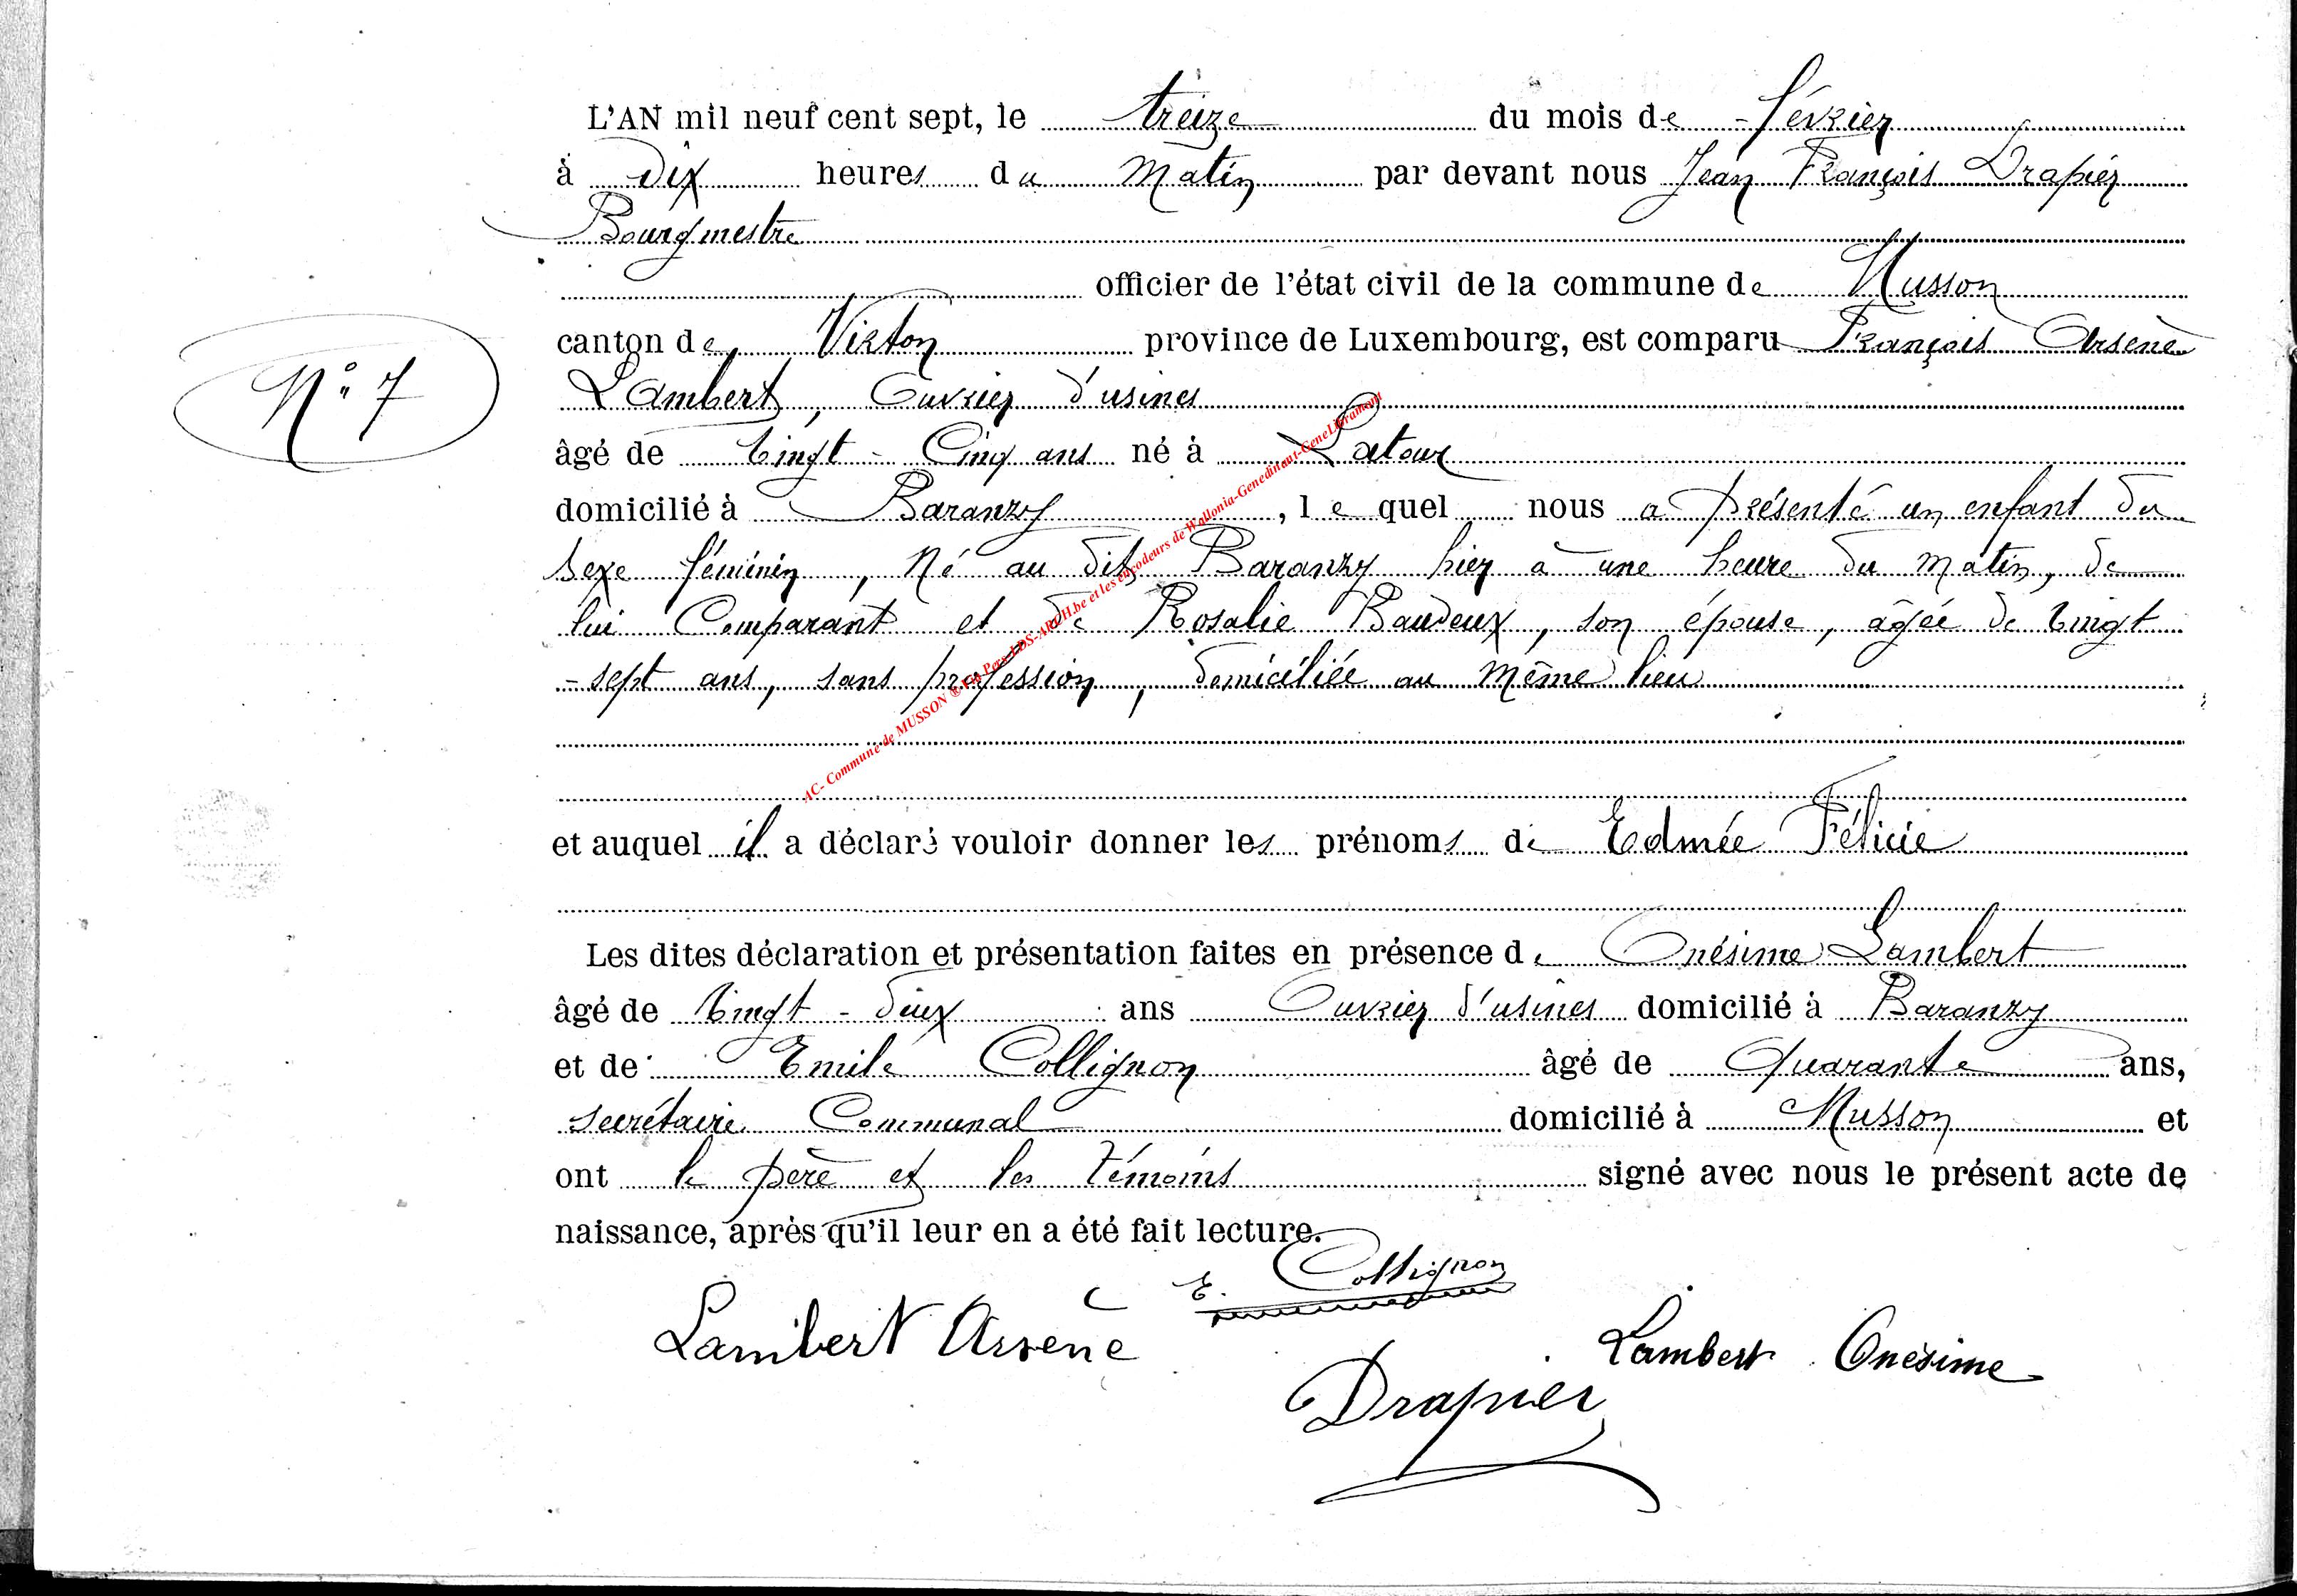 L'AN mil neuf cent sept, le treize du mois de février
à dix heures du matin par devant nous Jean François Drapier
Bourgmestre
officier de l'état civil de la commune de Musson
canton de Virton province de Luxembourg, est comparu François Arsène
Lambert, Ouvrier d'usines
N° 7
âgé de vingt-cinq ans né à Latour
domicilié à Baranzy, lequel nous a présenté un enfant du
sexe féminin, né au dit Baranzy hier à une heure du matin, de
lui Comparant et de Rosalie Baudeux, son épouse, âgée de vingt
-sept ans, sans profession, domiciliée au même lieu
et auquel il a déclaré vouloir donner les prénoms de Edmée Félicie
Les dites déclaration et présentation faites en présence de Onésime Lambert
âgé de vingt-deux ans Ouvrier d'usines domicilié à Baranzy
et de Emile Collignon âgé de quarante ans,
secrétaire Communal domicilié à Musson et
ont le père et les témoins signé avec nous le présent acte de
naissance, après qu'il leur en a été fait lecture.
E. Collignon
Lambert Arsène
Lambert Onésime
Drapier
AC- Commune de MUSSON © les encodeurs de Wallonia-Genedinant-GeneLibramont